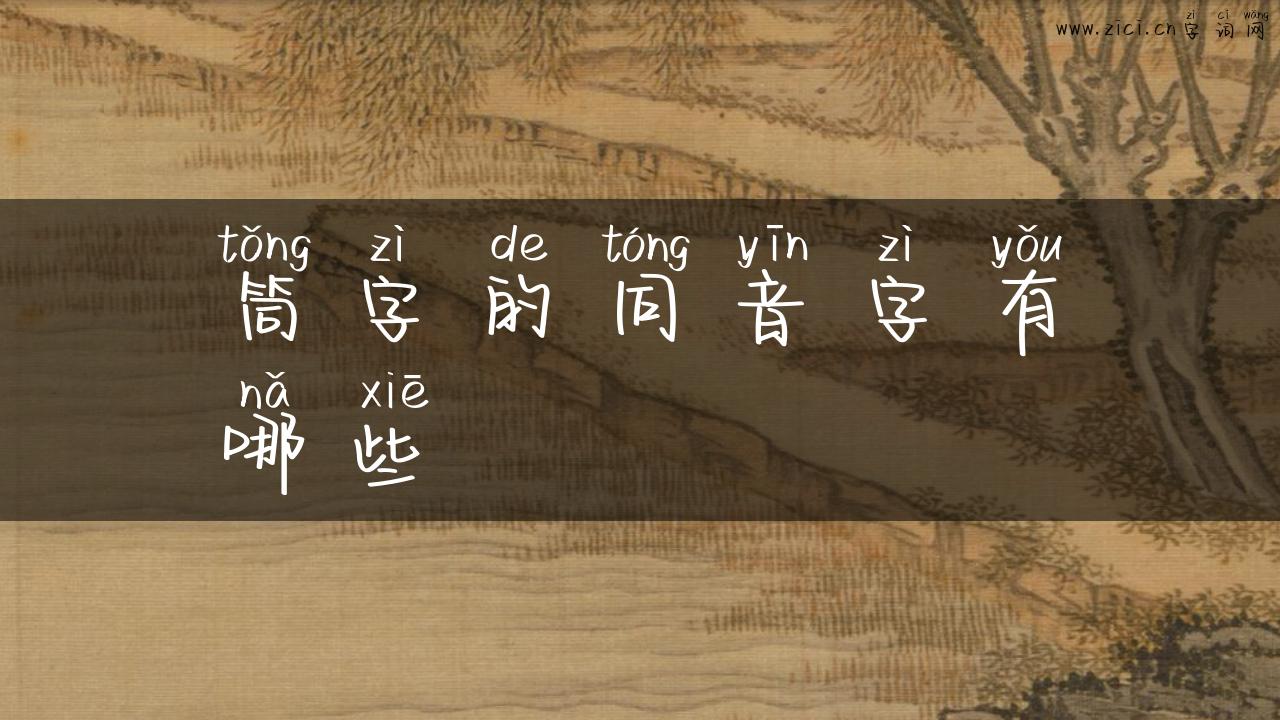 zì cí wǎng
www.zici.cn字词网
tǒng zì de tóng yīn zì yǒu
筒字的同音字有
nǎ xiē
哪些